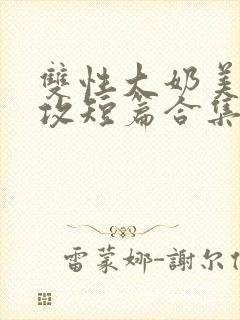 雙性大奶美
攻短篇合集
雷蒙娜-謝尔